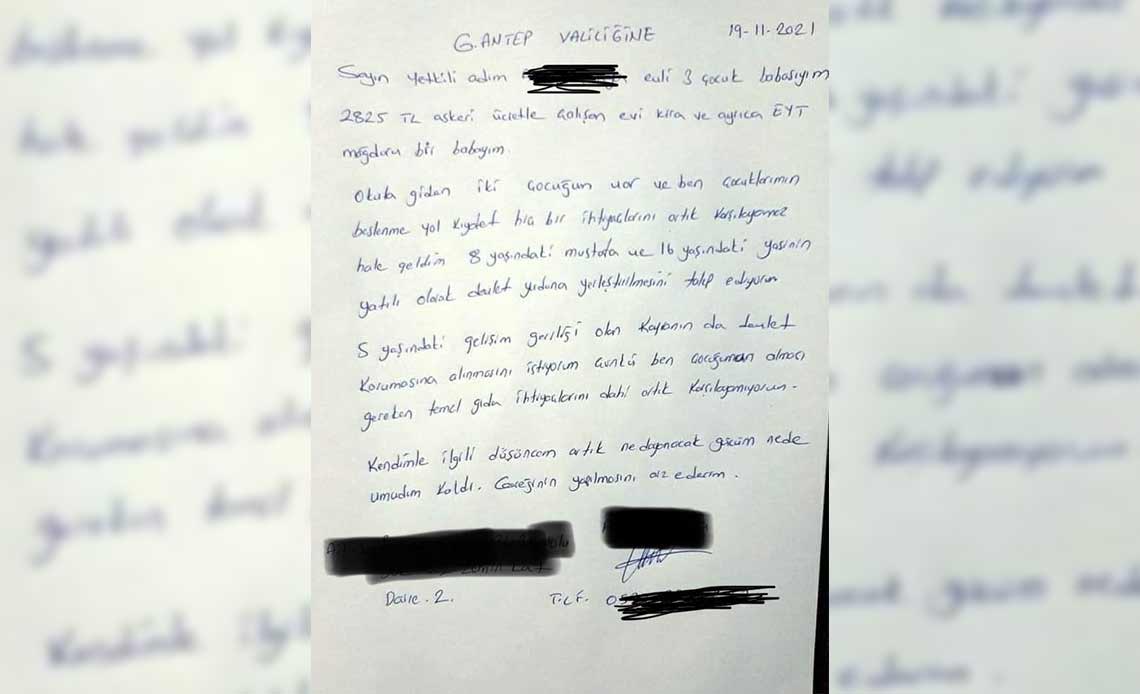 G.ANTEP VALİLİĞİNE 19-11-2021
Sayın yetkili adım evli 3 çocuk babasıyım
2825 TL askeri ücretle çalışan evi kira ve ayrıca EYT
mağduru bir babayım.
Okula giden iki çocuğun var ve ben çocuklarımın
beslenme yol kıyafet hiç bir ihtiyaçlarını artık karşılayamaz
hale geldim 8 yaşındaki mustafa ve 16 yaşındaki yasinin
yatılı olarak devlet yurduna yerleştirilmesini talep ediyorum
5 yaşındaki gelişim geriliği olan Kaplanın da devlet
korumasına alınmasını istiyorum çünkü ben çocuğuman alması
gereken temel gıda ihtiyaçlarını dahi artık karşılayamıyorum.
Kendimle ilgili düşüncem artık ne dayanacak gücüm nede
umudum kaldı. Gereğinin yapılmasını arz ederim.
Daire.2. TLF. 05